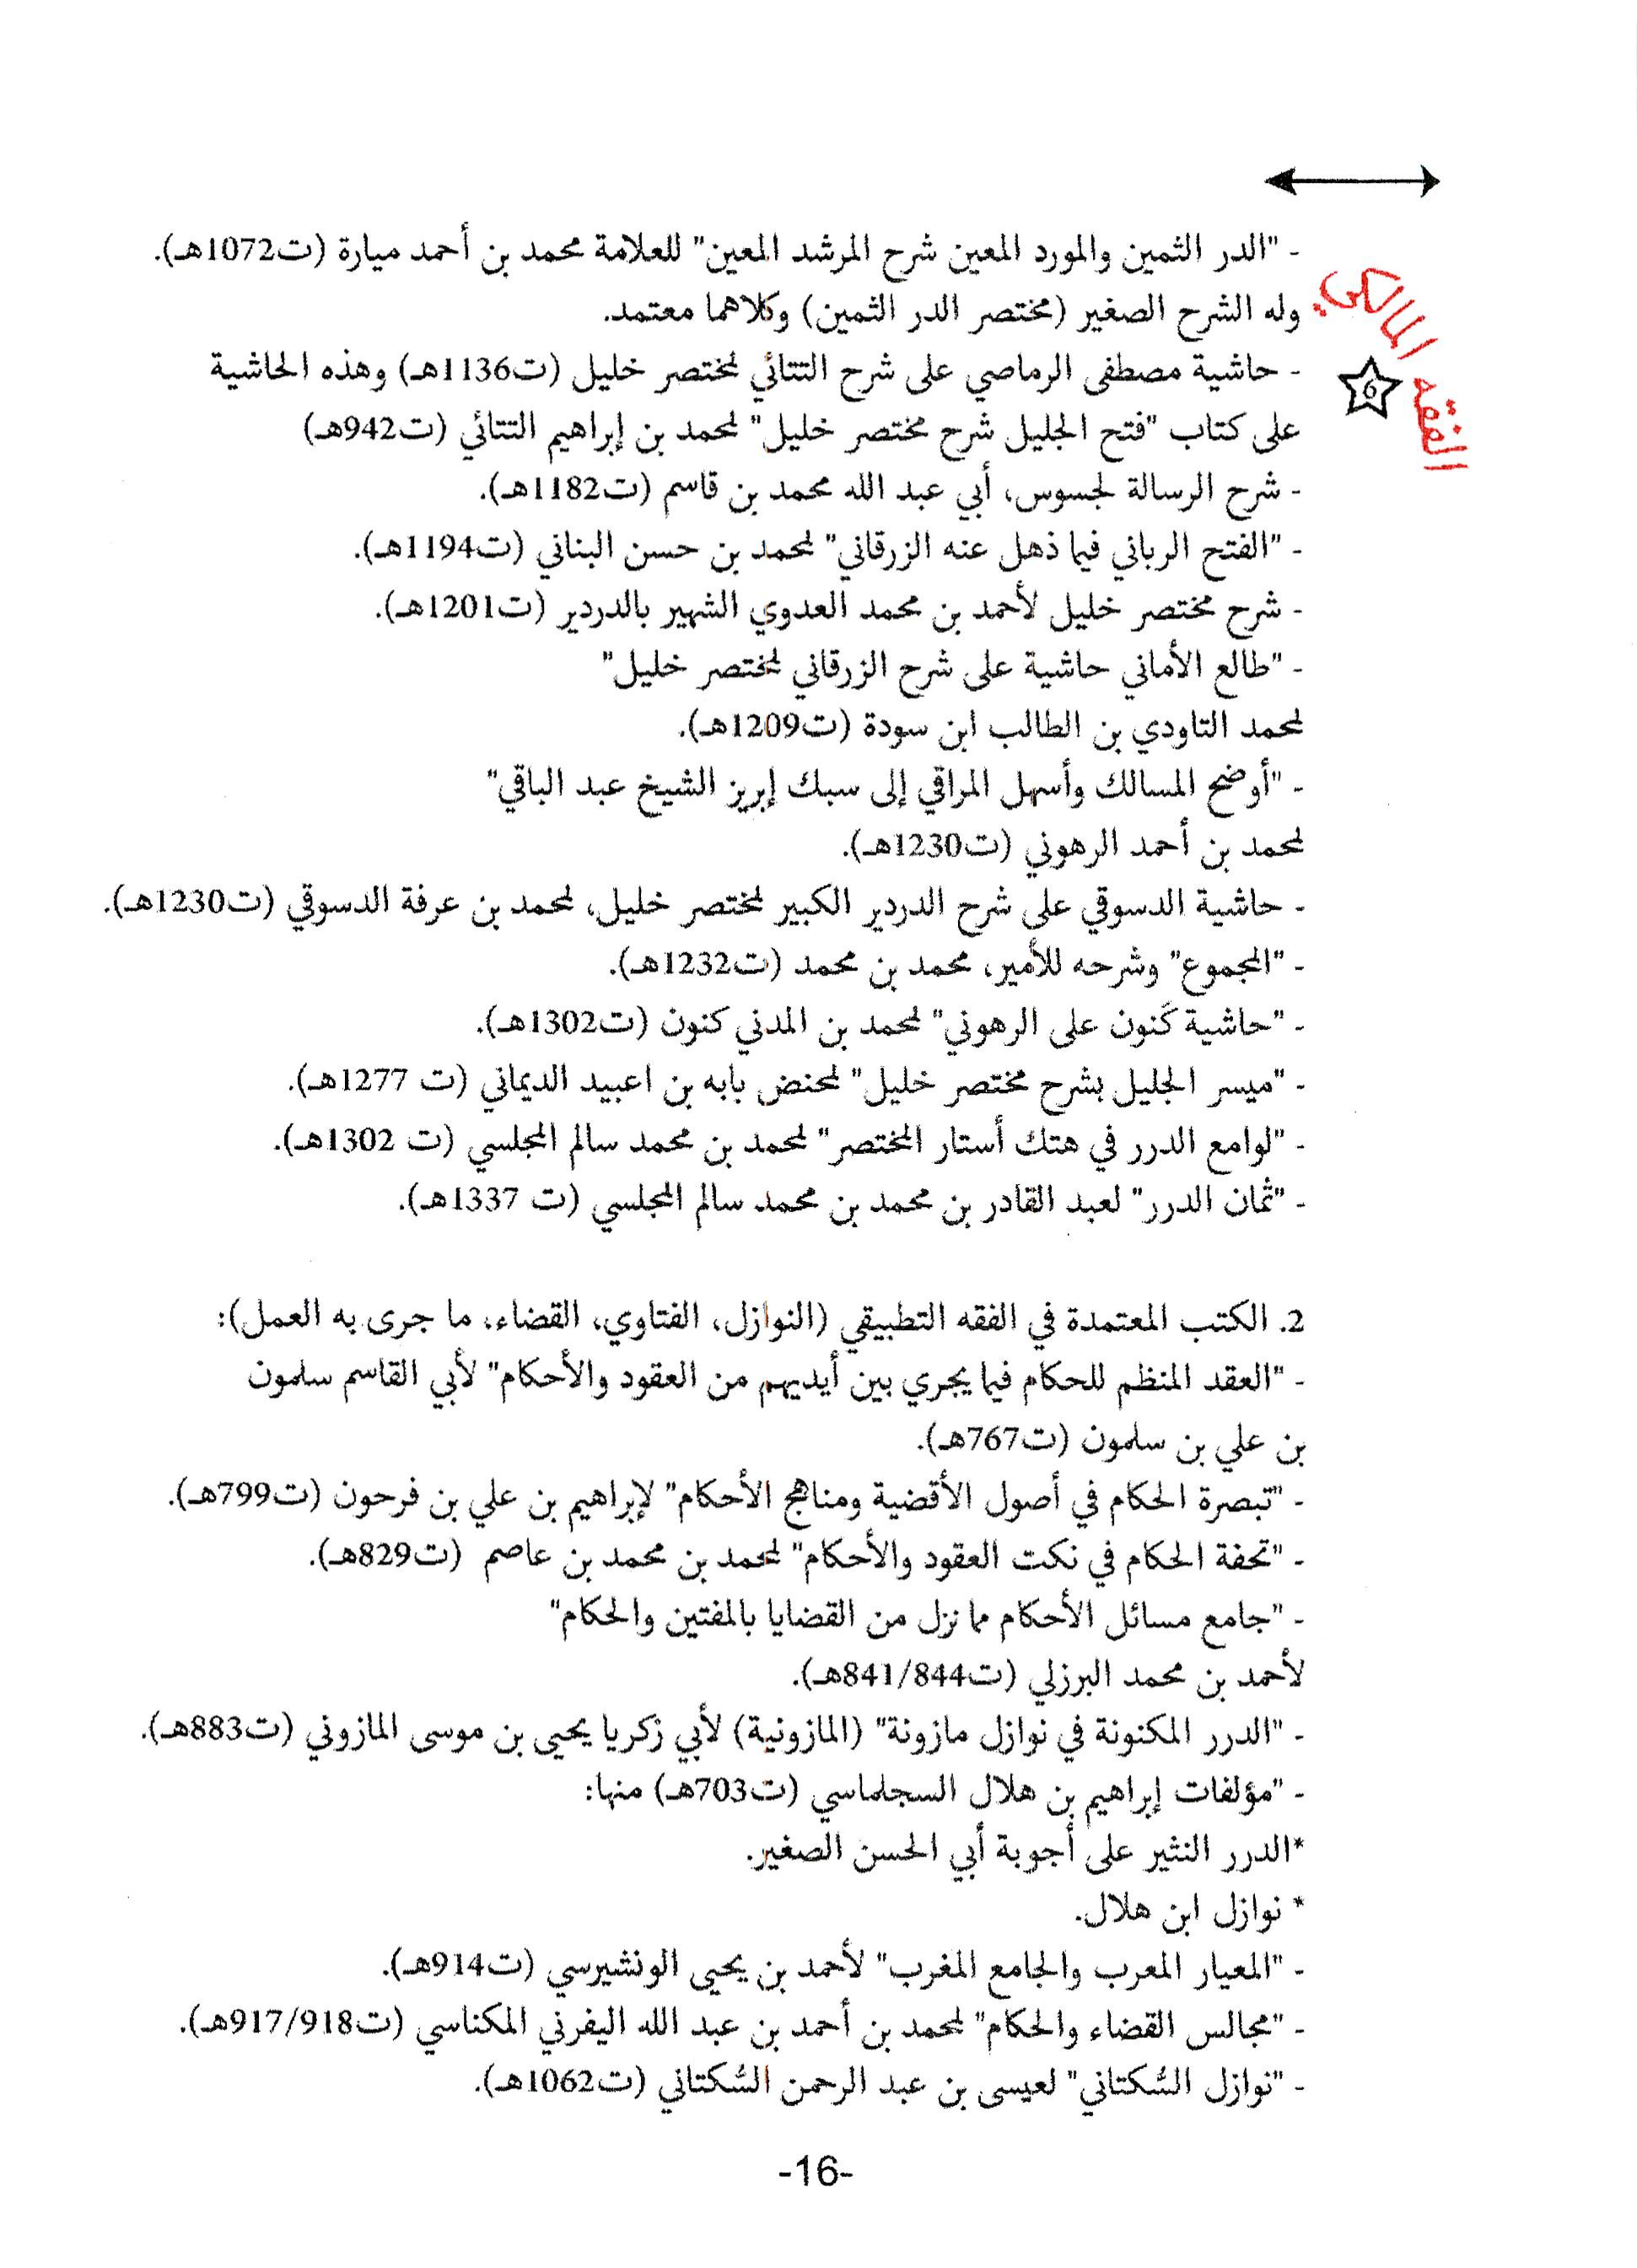 الفقه المالكي
6
- "الدر الثمين والمورد المعين شرح المرشد المعين" للعلامة محمد بن أحمد ميارة (ت1072هـ).
وله الشرح الصغير (مختصر الدر الثمين) وكلاهما معتمد.
- حاشية مصطفى الرماصي على شرح التتائي لمختصر خليل (ت1136هـ) وهذه الحاشية
على كتاب "فتح الجليل شرح مختصر خليل" لمحمد بن إبراهيم التتائي (ت942هـ)
- شرح الرسالة لجسوس، أبي عبد الله محمد بن قاسم (ت1182هـ).
- "الفتح الرباني فيما ذهل عنه الزرقاني" لمحمد بن حسن البناني (ت1194هـ).
- شرح مختصر خليل لأحمد بن محمد العدوي الشهير بالدردير (ت1201هـ).
- "طالع الأماني حاشية على شرح الزرقاني لمختصر خليل"
لمحمد التاودي بن الطالب ابن سودة (ت1209هـ).
- "أوضح المسالك وأسهل المراقي إلى سبك إبريز الشيخ عبد الباقي"
لمحمد بن أحمد الرهوني (ت1230هـ).
- حاشية الدسوقي على شرح الدردير الكبير لمختصر خليل، لمحمد بن عرفة الدسوقي (ت1230هـ).
- "المجموع" وشرحه للأمير، محمد بن محمد (ت1232هـ).
- "حاشية كَنون على الرهوني" لمحمد بن المدني كنون (ت1302هـ).
- "ميسر الجليل بشرح مختصر خليل" لمحنض بابه بن اعبيد الديماني (ت 1277هـ).
- "لوامع الدرر في هتك أستار المختصر" لمحمد بن محمد سالم المجلسي (ت 1302هـ).
- "ثمان الدرر" لعبد القادر بن محمد بن محمد سالم المجلسي (ت 1337هـ).
2. الكتب المعتمدة في الفقه التطبيقي (النوازل، الفتاوي، القضاء، ما جرى به العمل):
- "العقد المنظم للحكام فيما يجري بين أيديهم من العقود والأحكام" لأبي القاسم سلمون
بن علي بن سلمون (ت767هـ).
- "تبصرة الحكام في أصول الأقضية ومناهج الأحكام" لإبراهيم بن علي بن فرحون (ت799هـ).
- "تحفة الحكام في نكت العقود والأحكام" لمحمد بن محمد بن عاصم (ت829هـ).
- "جامع مسائل الأحكام مما نزل من القضايا بالمفتين والحكام"
لأحمد بن محمد البرزلي (ت841/844هـ).
- "الدرر المكنونة في نوازل مازونة" (المازونية) لأبي زكريا يحيى بن موسى المازوني (ت883هـ).
- "مؤلفات إبراهيم بن هلال السجلماسي (ت703هـ) منها:
*الدرر النثير على أجوبة أبي الحسن الصغير.
* نوازل ابن هلال.
- "المعيار المعرب والجامع المغرب" لأحمد بن يحيى الونشيرسي (ت914هـ).
- "مجالس القضاء والحكام" لمحمد بن أحمد بن عبد الله اليفرني المكناسي (ت917/918هـ).
- "نوازل السُّكتاني" لعيسى بن عبد الرحمن السُّكتاني (ت1062هـ).
-16-